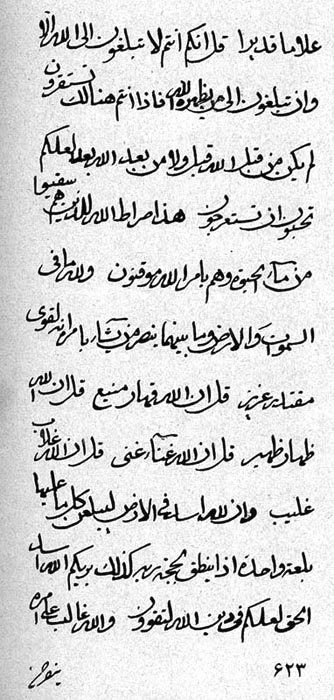 علاما قديرا قل انكم انتم لا تبلغون الى الله الا
وان تبلغون الى من يظهره الله فاذا انتم هنالك تستقرون
لم يكن من قبل الله قبل ولا من بعد الله بعد لعلكم
تحبون ان تستعرجون هذا صراط الله للذينهم سقيوا
من ماء الحيوة وهم بامر الله موقنون ولله ما فى
السموات والارض وما بينهما ينصر من يشاء بامره انه لقوى
مقتدر عزيز قل ان الله قهار منيع قل ان الله
ظهار ظهير قل ان الله غناء غنى قل ان الله غلاب
غليب وان لله اساء فى الارض ليبلغن كل ما عليها
بلغة واحدة اذا ينطق بحجة ربه كذلك يريكم الله اسباب
الحق لعلكم فى دين الله لتتقون والله غالب على امره
٦٢٣